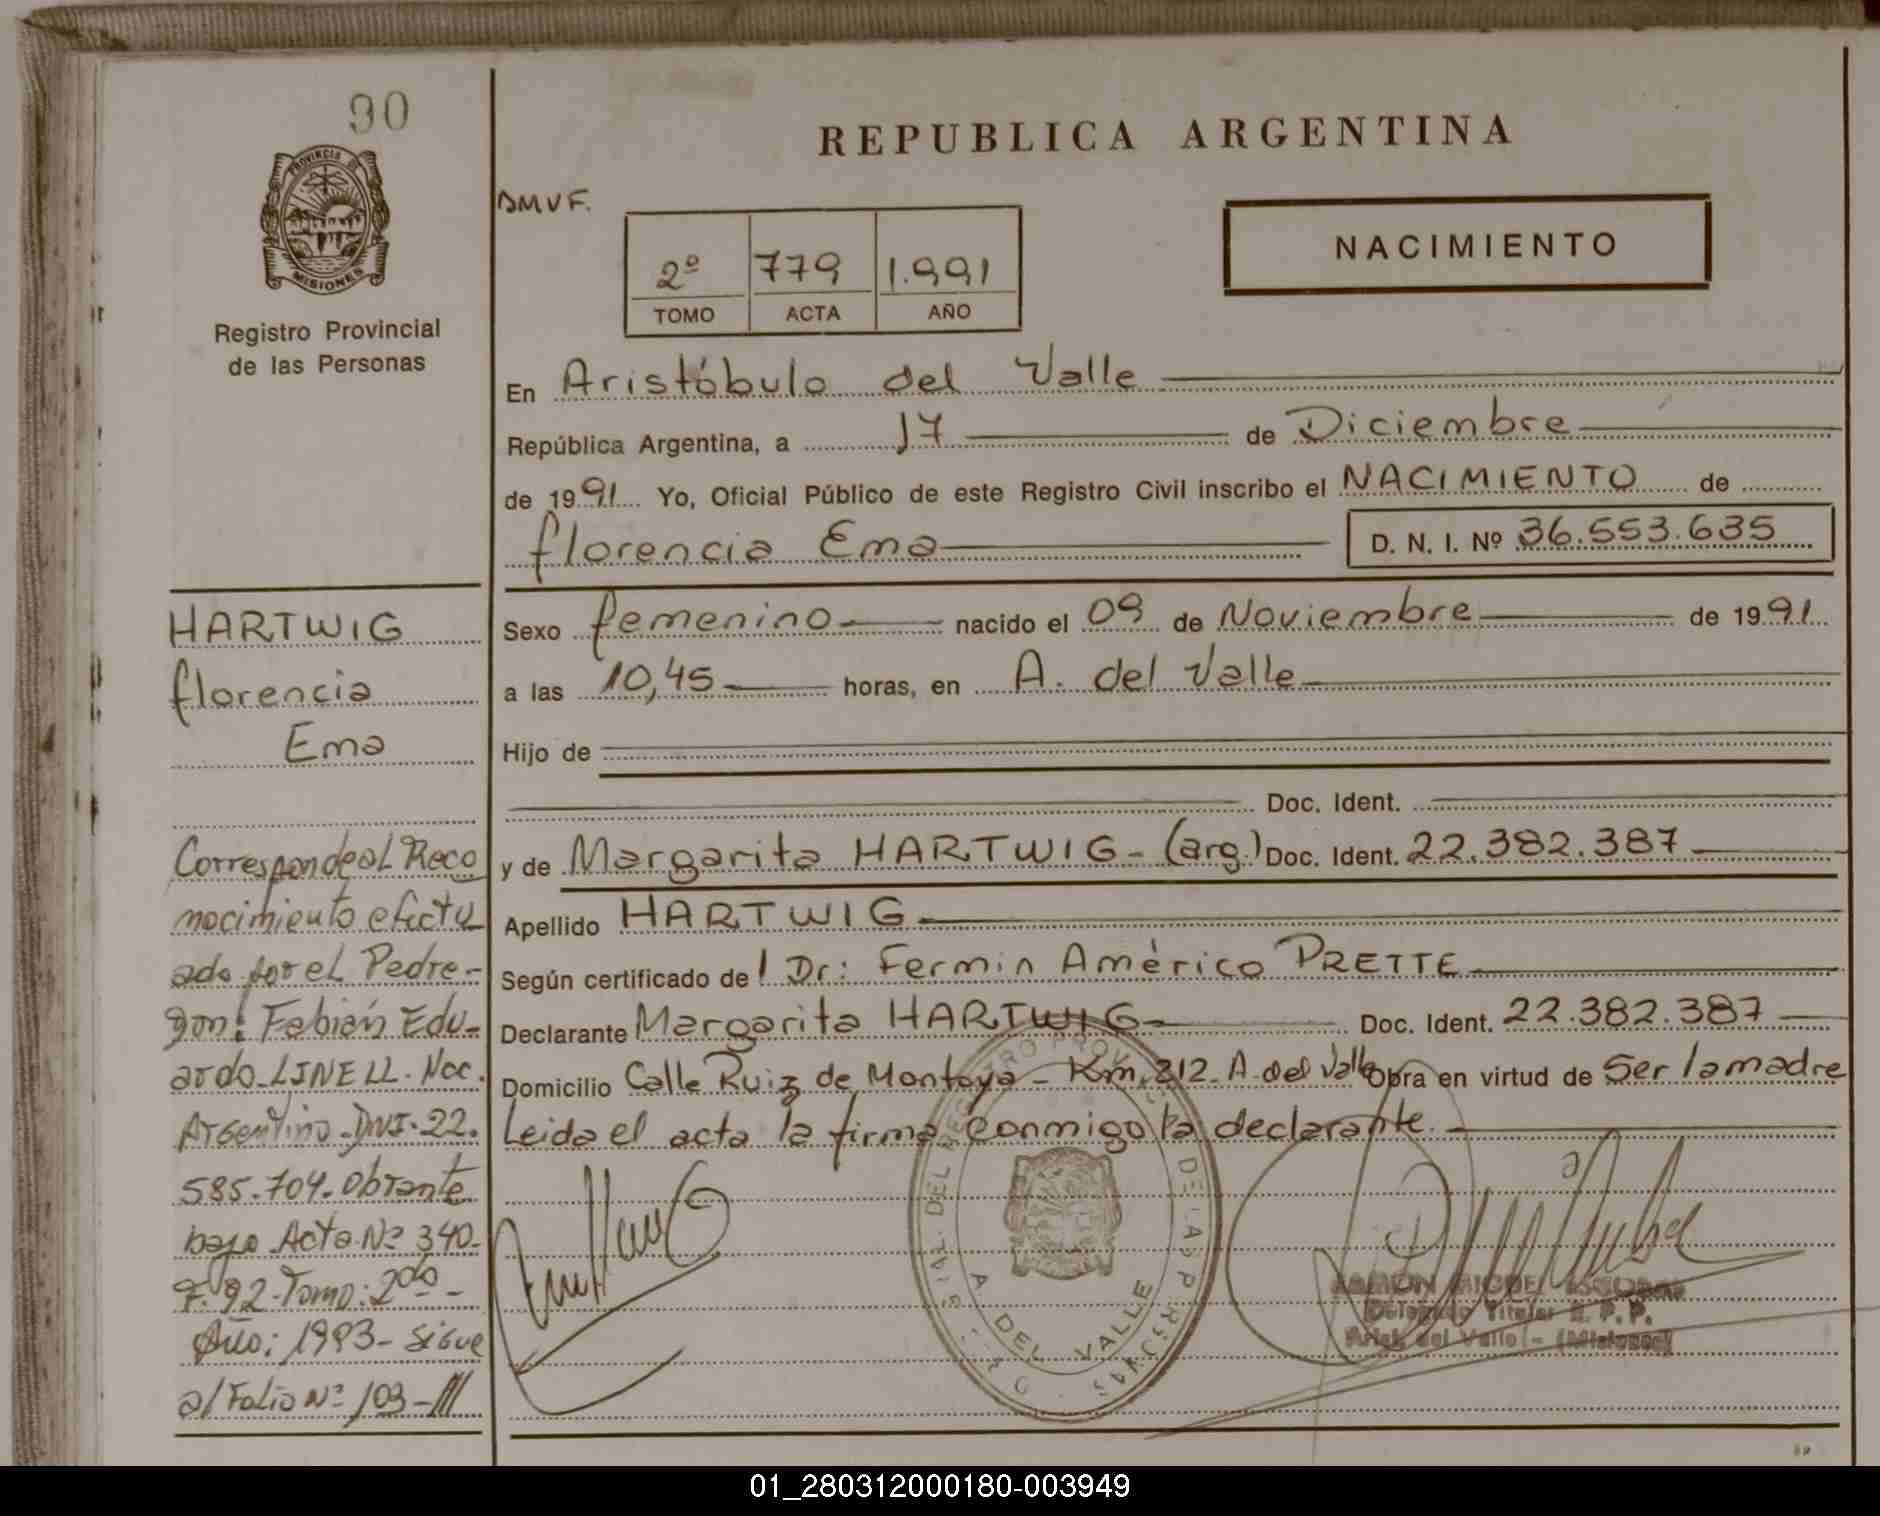 90
PROVINCIA DE
MISIONES
Registro Provincial
de las Personas
HARTWIG
florencia
Ema
Corresponde al Reco
nocimiento efectu
ado por el Pedre-
gon: Fabián Edu-
ardo LINELL. Nac.
Argentino. DNI. 22.
585.704. Obrante
bajo Acta Nº 340-
F. 92. Tomo: 2do -
Año: 1993 - Sigue
a/ Folio Nº 103-///
REPUBLICA ARGENTINA
DMVF.
2º 779 1.991
TOMO ACTA AÑO
NACIMIENTO
En Aristóbulo del Valle
República Argentina, a 17 de Diciembre
de 1991 Yo, Oficial Público de este Registro Civil inscribo el NACIMIENTO de
florencia Ema D. N. I. Nº 36.553.635
Sexo femenino nacido el 09 de Noviembre de 1991
a las 10,45 horas, en A. del Valle
Hijo de
Doc. Ident.
y de Margarita HARTWIG - (arg.) Doc. Ident. 22.382.387
Apellido HARTWIG
Según certificado de l Dr: Fermin Américo PRETTE
Declarante Margarita HARTWIG Doc. Ident. 22.382.387
Domicilio Calle Ruiz de Montoya - Km. 212. A. del Valle Obra en virtud de Ser la madre
Leida el acta la firma conmigo la declarante.
A. DEL VALLE
RAMON MIGUEL ESCOBAR
Delegado Titular R. P. P.
Arist. del Valle - (Misiones)
01_280312000180-003949